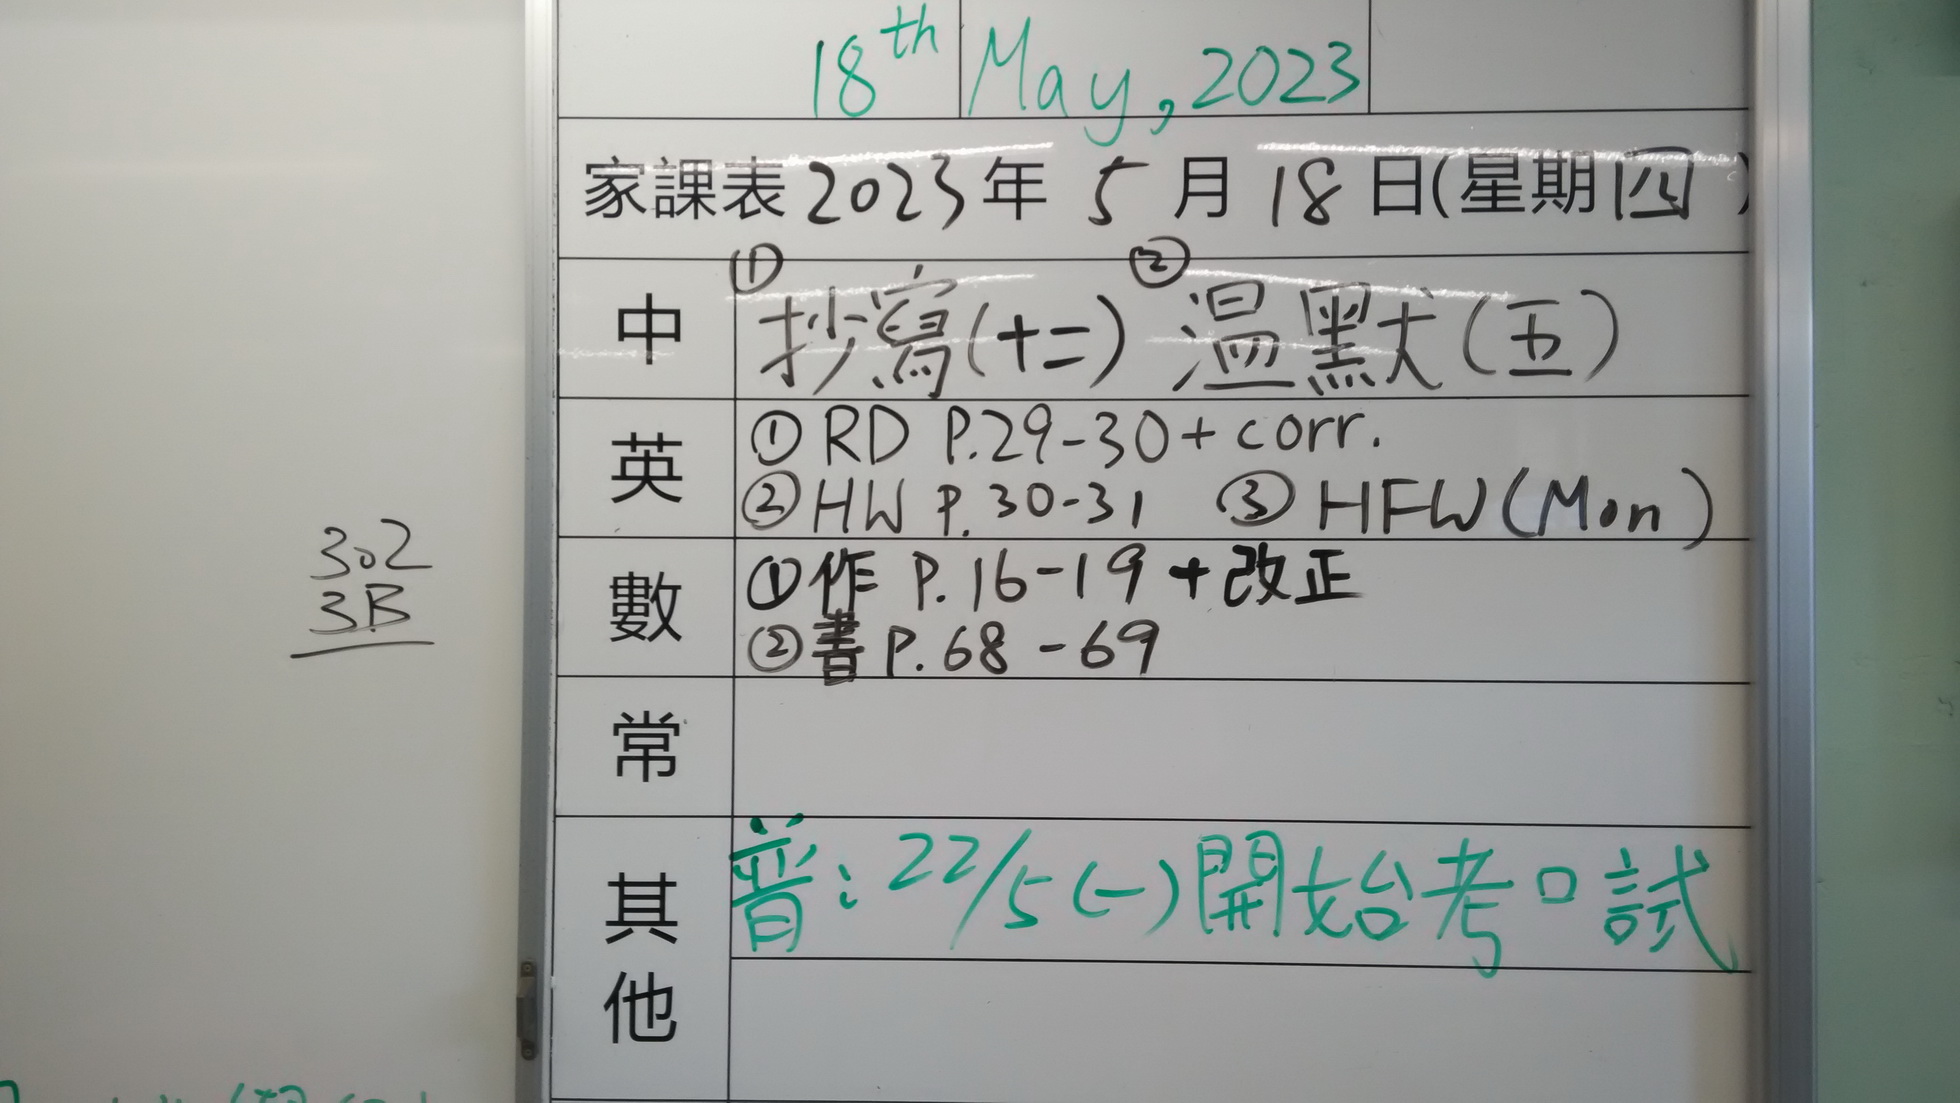 18th May, 2023
家課表 2023年 5月 18日(星期四)
中 ①抄寫(十二) ②溫默(五)
英 ①RD P.29-30+corr.
②HW P.30-31 ③HFW(Mon)
數 ①作 P.16-19+改正
②書 P.68-69
常
其他 普:22/5(一)開始考口試
302
3B